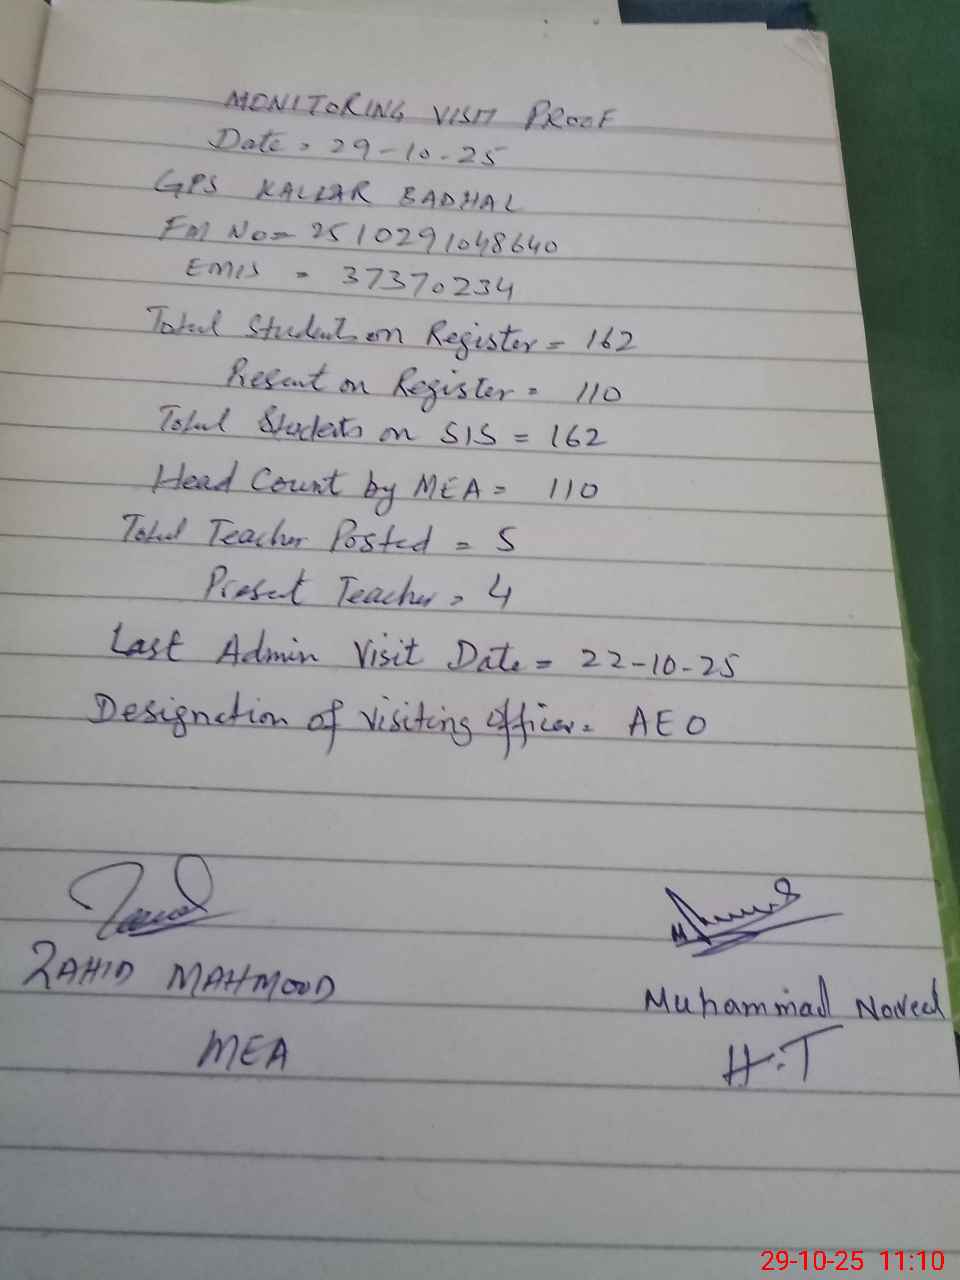 MONITORING VISIT PROOF
Date = 29-10-25
GPS KALLAR BADHAL
FM No = 2510291048640
EMIS = 37370234
Total Students on Register = 162
Present on Register = 110
Total Students on SIS = 162
Head Count by MEA = 110
Total Teacher Posted = 5
Present Teacher = 4
Last Admin Visit Date = 22-10-25
Designation of Visiting Officer = AEO
ZAHID MAHMOOD
MEA
Muhammad Naveed
H.T
29-10-25 11:10